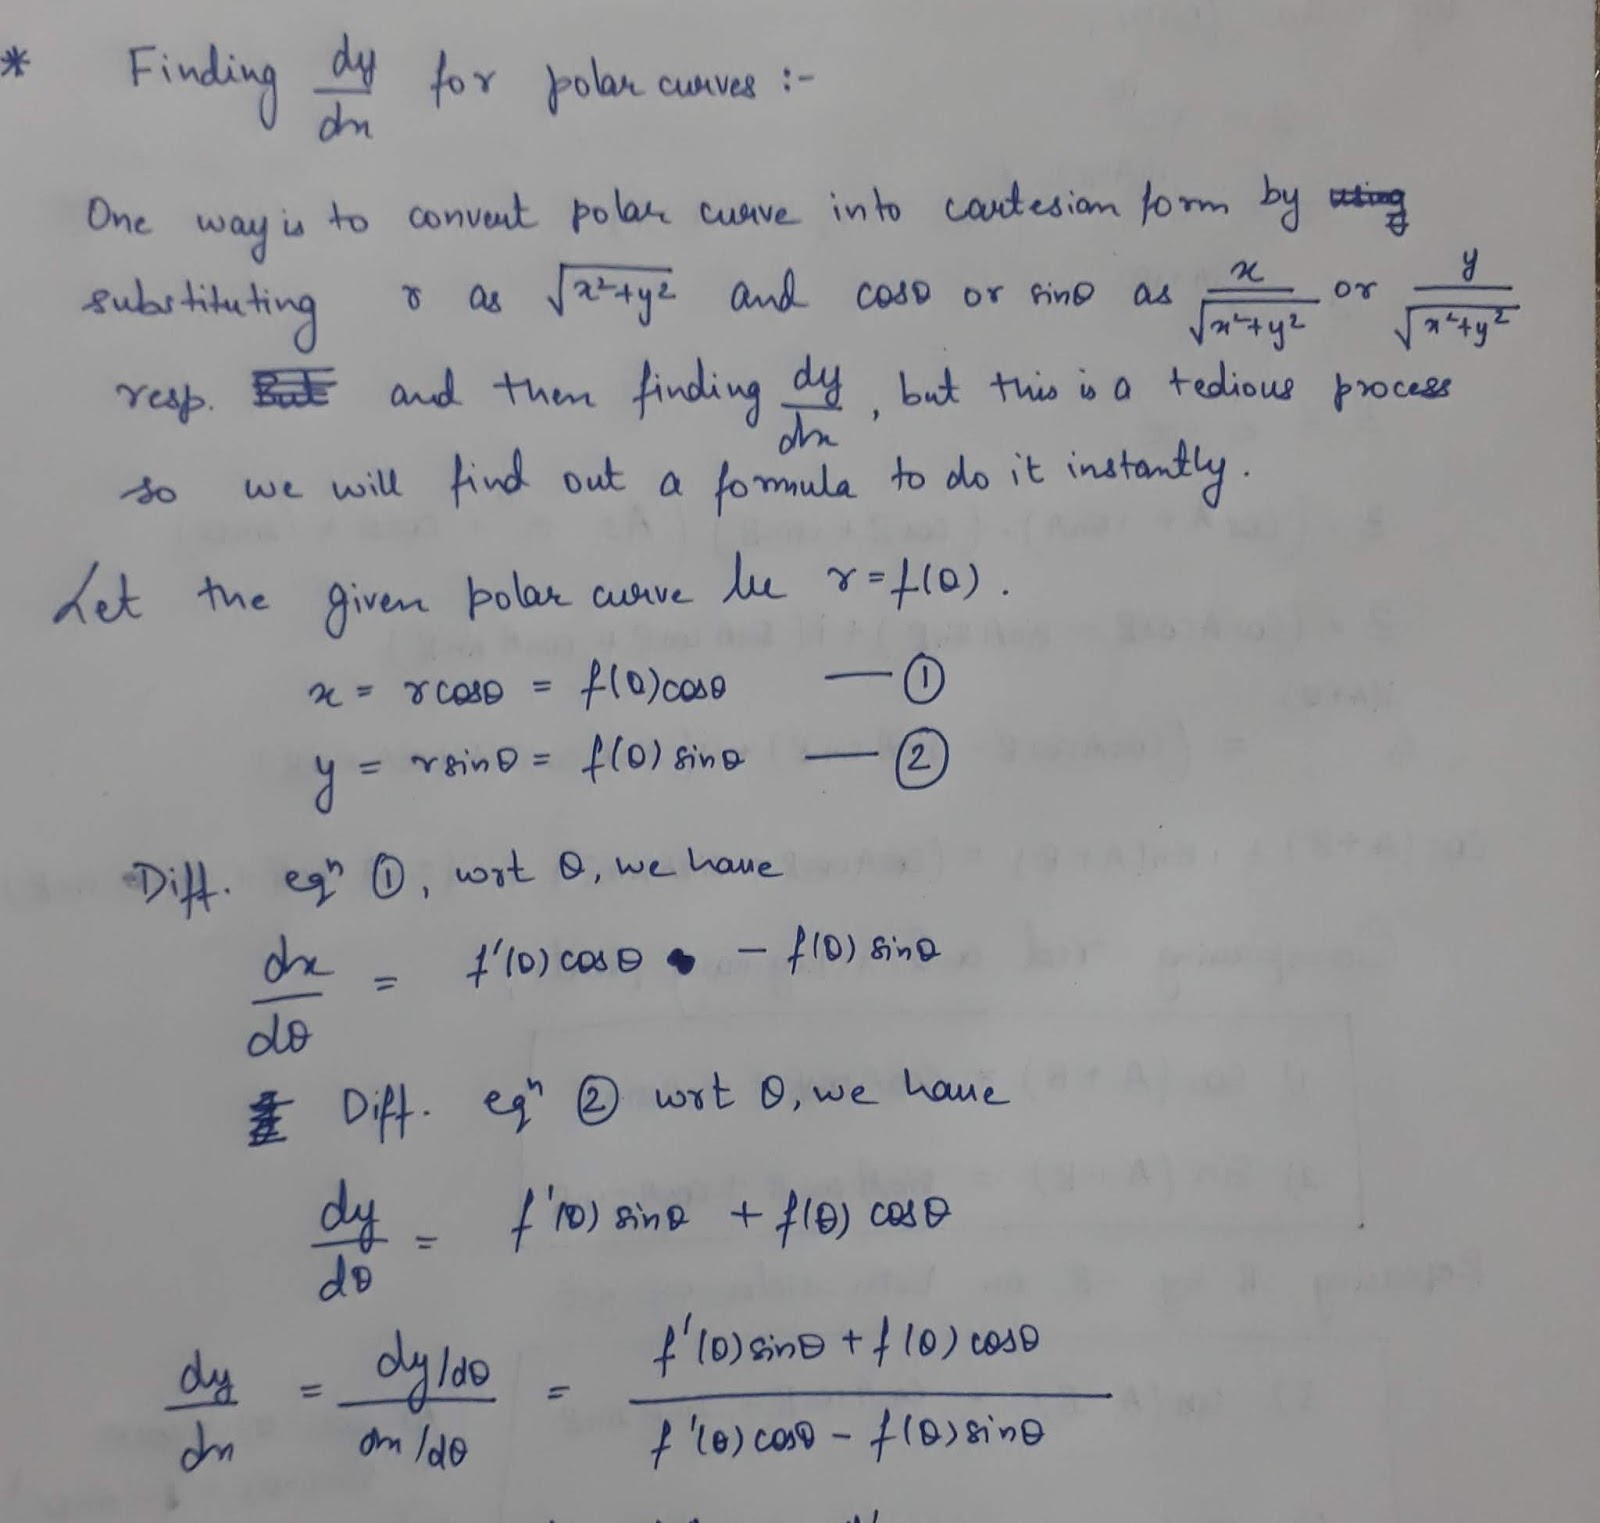 * Finding dy/dx for polar curves :-
One way is to convert polar curve into cartesian form by using
substituting r as √(x²+y²) and cosθ or sinθ as x/√(x²+y²) or y/√(x²+y²)
resp. But and then finding dy/dx, but this is a tedious process
so we will find out a formula to do it instantly.
Let the given polar curve be r = f(θ).
x = rcosθ = f(θ)cosθ — ①
y = rsinθ = f(θ) sinθ — ②
Diff. eqⁿ ①, wrt θ, we have
dx/dθ = f'(θ) cosθ - f(θ) sinθ
Diff. eqⁿ ② wrt θ, we have
dy/dθ = f'(θ) sinθ + f(θ) cosθ
dy/dx = (dy/dθ)/(dx/dθ) = (f'(θ) sinθ + f(θ) cosθ)/(f'(θ) cosθ - f(θ) sinθ)